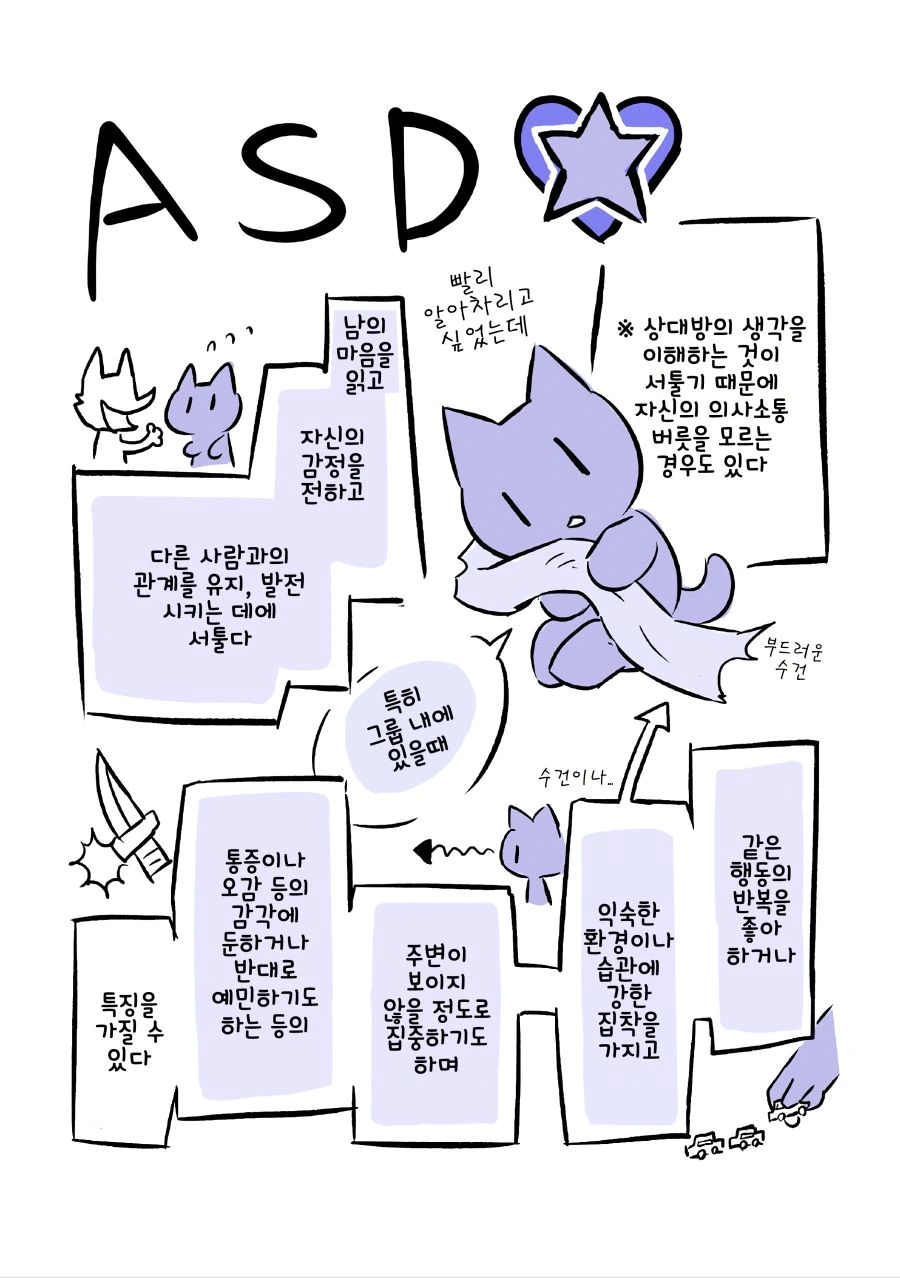 ASD
빨리
알아차리고
싶었는데
※ 상대방의 생각을
이해하는 것이
서툴기 때문에
자신의 의사소통
버릇을 모르는
경우도 있다
남의
마음을
읽고
자신의
감정을
전하고
다른 사람과의
관계를 유지, 발전
시키는 데에
서툴다
부드러운
수건
특히
그룹 내에
있을때
수건이나...
같은
행동의
반복을
좋아
하거나
익숙한
환경이나
습관에
강한
집착을
가지고
주변이
보이지
않을 정도로
집중하기도
하며
통증이나
오감 등의
감각에
둔하거나
반대로
예민하기도
하는 등의
특징을
가질 수
있다